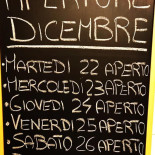 APERTURE
DICEMBRE
• MARTEDI 22 APERTO
• MERCOLEDI 23 APERTO
• GIOVEDI 24 APERTO
• VENERDI 25 APERTO
• SABATO 26 APERTO